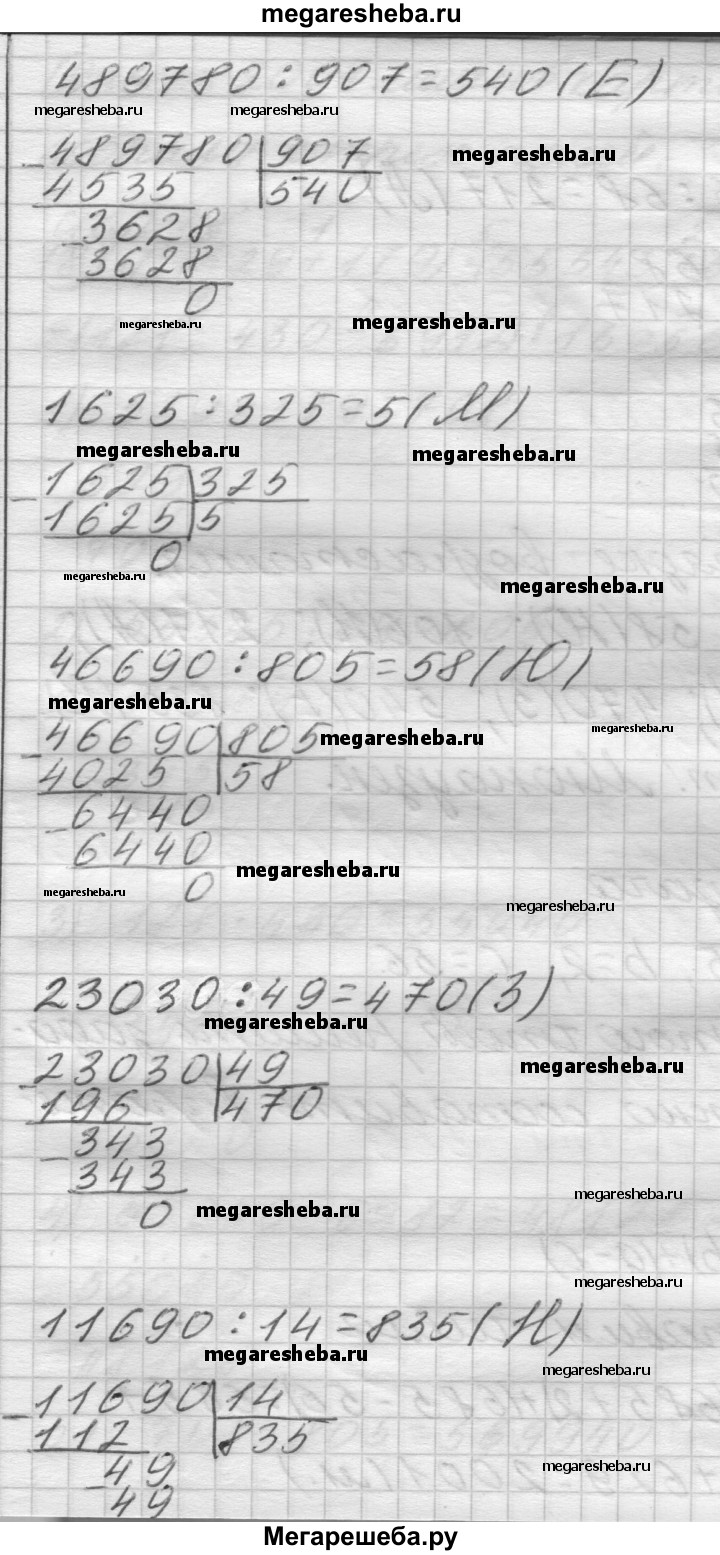 megaresheba.ru
489780:907=540(Е)
megaresheba.ru megaresheba.ru
489780 907 megaresheba.ru
4535 540
3628
3628
0
megaresheba.ru megaresheba.ru
1625:325=5(М)
megaresheba.ru megaresheba.ru
1625 325
1625 5
0
megaresheba.ru megaresheba.ru
46690:805=58(Ю)
megaresheba.ru megaresheba.ru
46690 805 megaresheba.ru
4025 58
6440
6440 megaresheba.ru
0
megaresheba.ru megaresheba.ru
23030:49=470(З)
megaresheba.ru
23030 49 megaresheba.ru
196 470
343
343 megaresheba.ru
0 megaresheba.ru
megaresheba.ru
11690:14=835(Н)
megaresheba.ru megaresheba.ru
11690 14
112 835
49 megaresheba.ru
49
Мегарешеба.ру